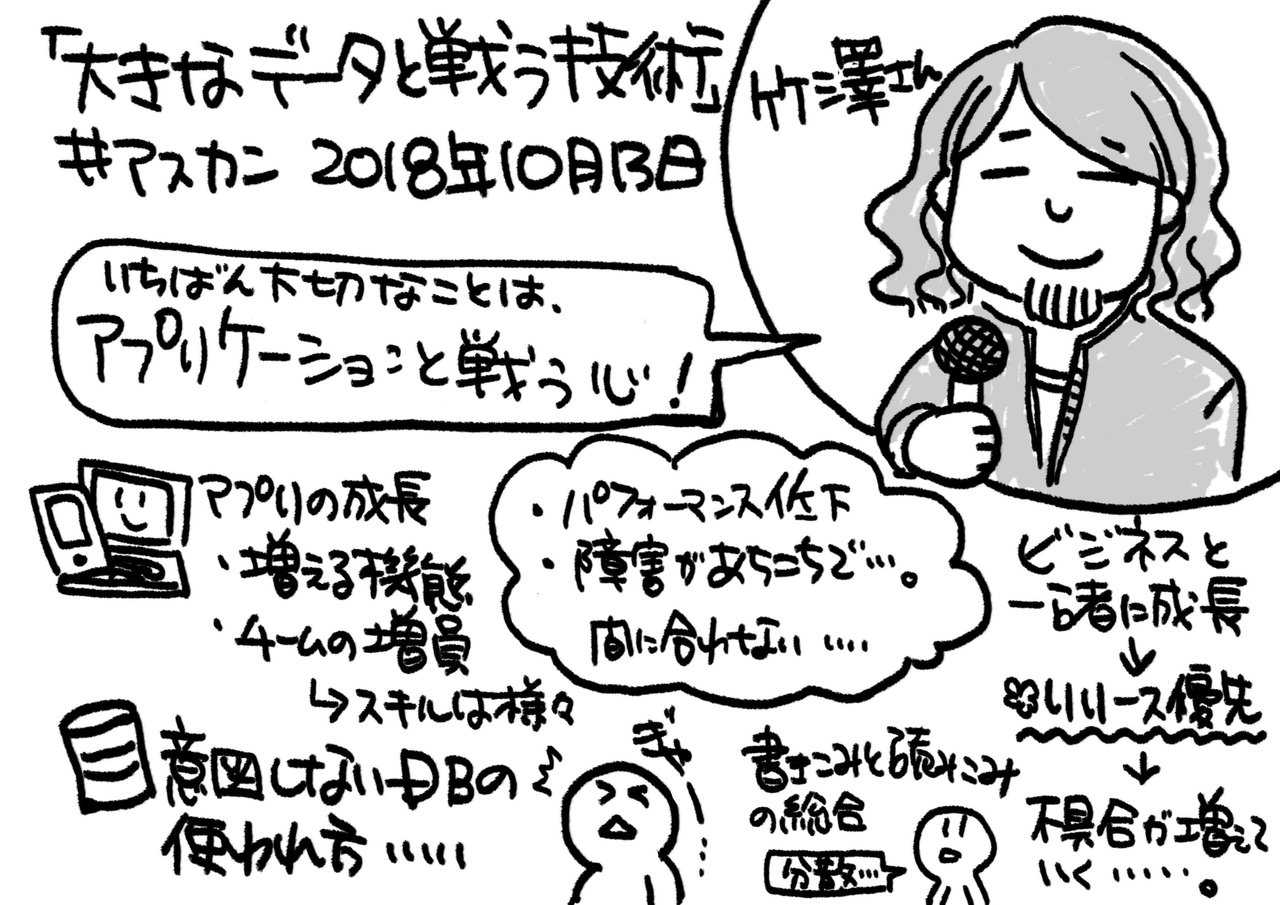 「大きなデータと戦う技術」
#アスカン 2018年10月13日
竹澤さん
いちばん大切なことは、
アプリケーションと戦う心!
アプリの成長
・増える機能
・チームの増員
↳スキルは様々
・パフォーマンス低下
・障害があちこちで…。
間に合わない‥‥
ビジネスと
一緒に成長
↓
リリース優先
↓
不具合が増えて
いく‥‥‥。
意図しないDBの
使われ方‥‥‥
ぎゃ
書きこみと読みこみ
の総合
分散…